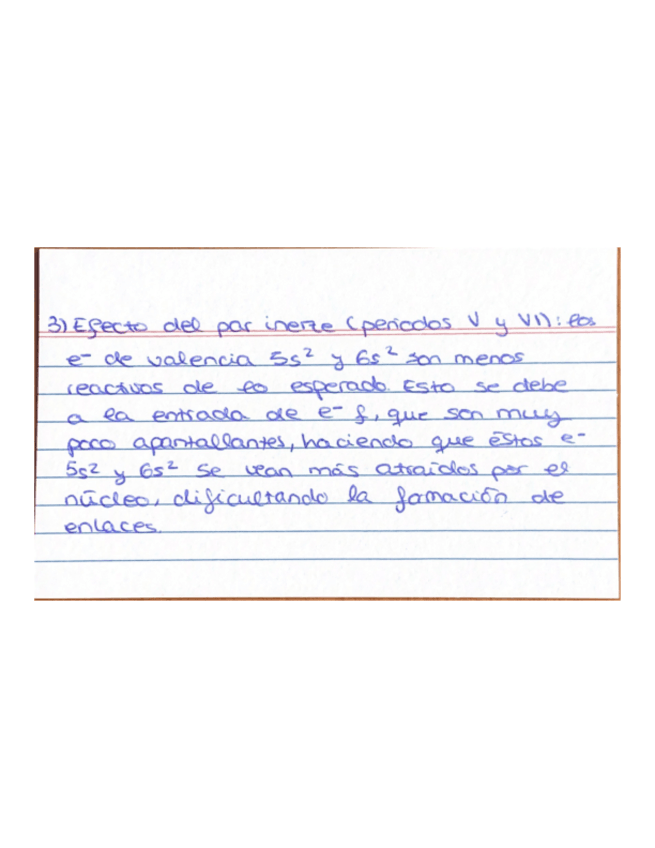 3) Efecto del par inerte (periodos V y VI): los
e- de valencia 5s² y 6s² son menos
reactivos de lo esperado. Esto se debe
a la entrada de e- f, que son muy
poco apantallantes, haciendo que éstos e-
5s² y 6s² se vean más atraídos por el
núcleo, dificultando la formación de
enlaces.